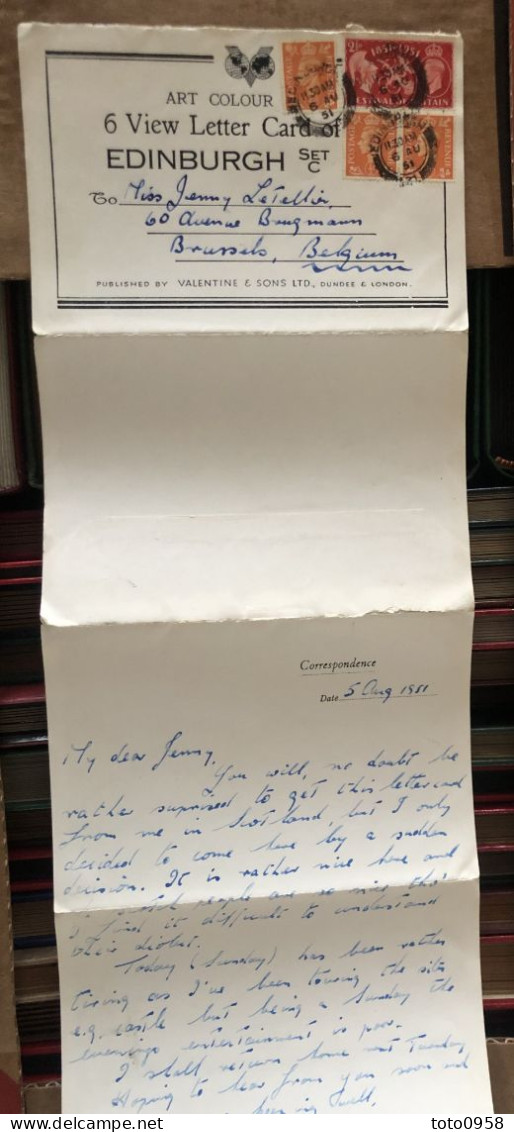 ART COLOUR
6 View Letter Card of
EDINBURGH SET C
1851-1951
2½
FESTIVAL OF BRITAIN
POSTAGE
11.30 AM
6 AU
51
To Miss Jenny LeTellier,
60 Avenue Brugmann
Brussels, Belgium
PUBLISHED BY VALENTINE & SONS LTD., DUNDEE & LONDON.
Correspondence
Date 5 Aug 1951
My dear Jenny,
You will, no doubt be
rather suprised to get this lettercard
from me in Scotland, but I only
decided to come here by a sudden
decision. It is rather nice here and
people are so nice tho'
I find it difficult to understand
their
Today (Sunday) has been rather
tiring as I've been touring the sites
e.g. castle but being a Sunday the
evenings entertainment is poor.
I shall return home next Tuesday
Hoping to hear from you soon and
well,
toto0958